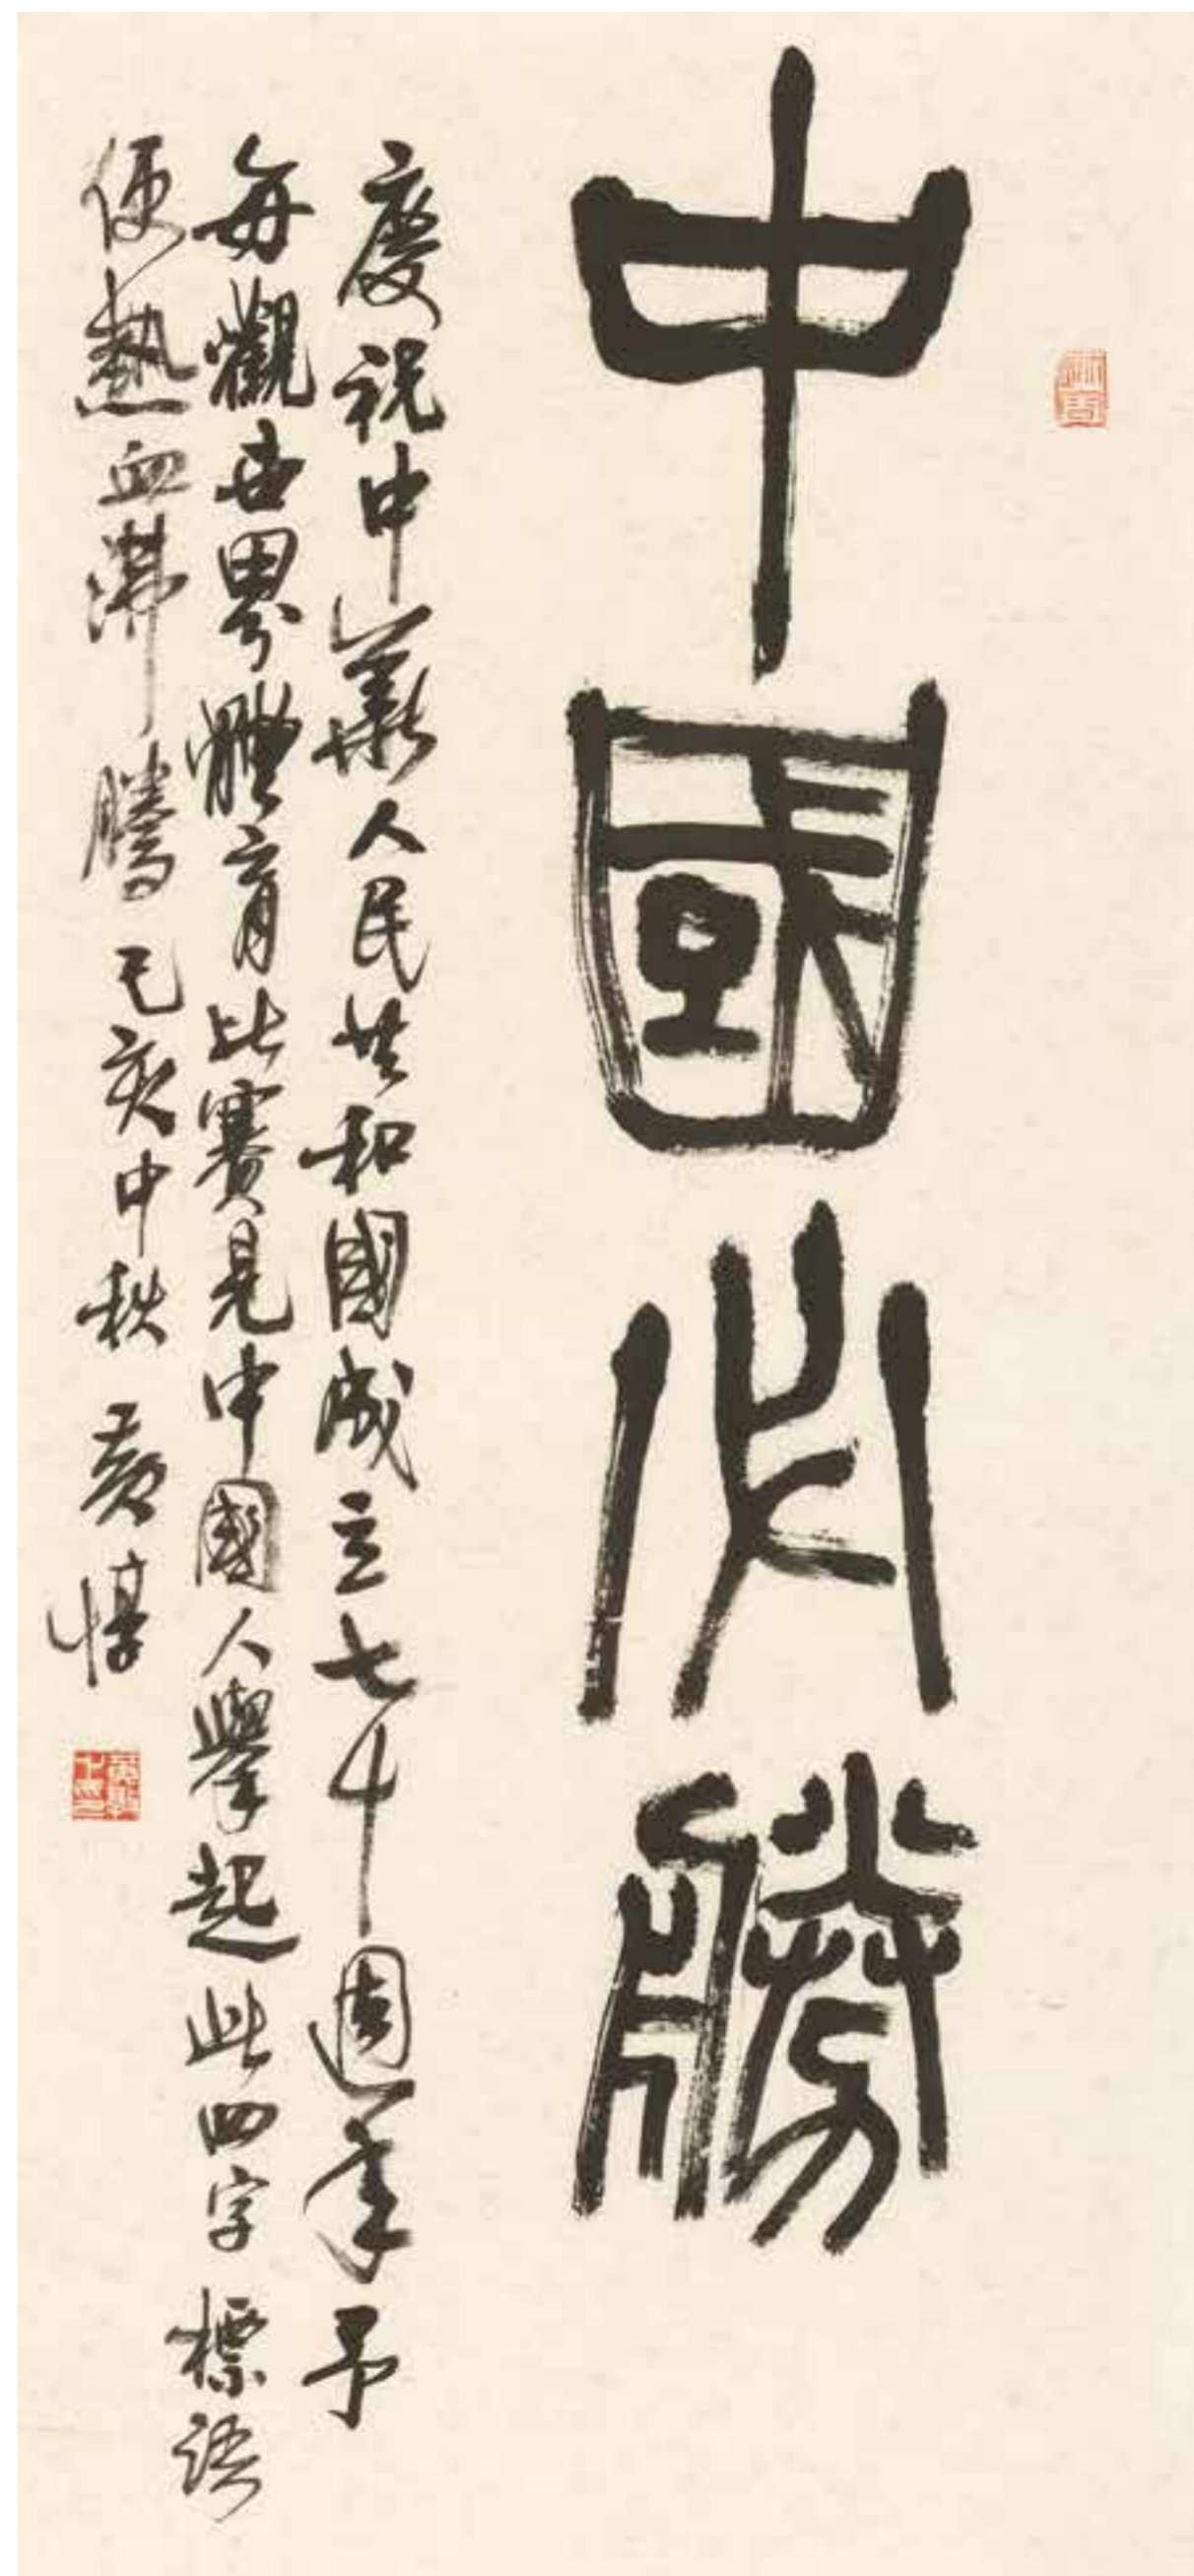 中國必勝
慶祝中華人民共和國成立七十週年予
每觀世界體育比賽見中國人舉起此四字標語
便熱血沸騰己亥中秋黃惇